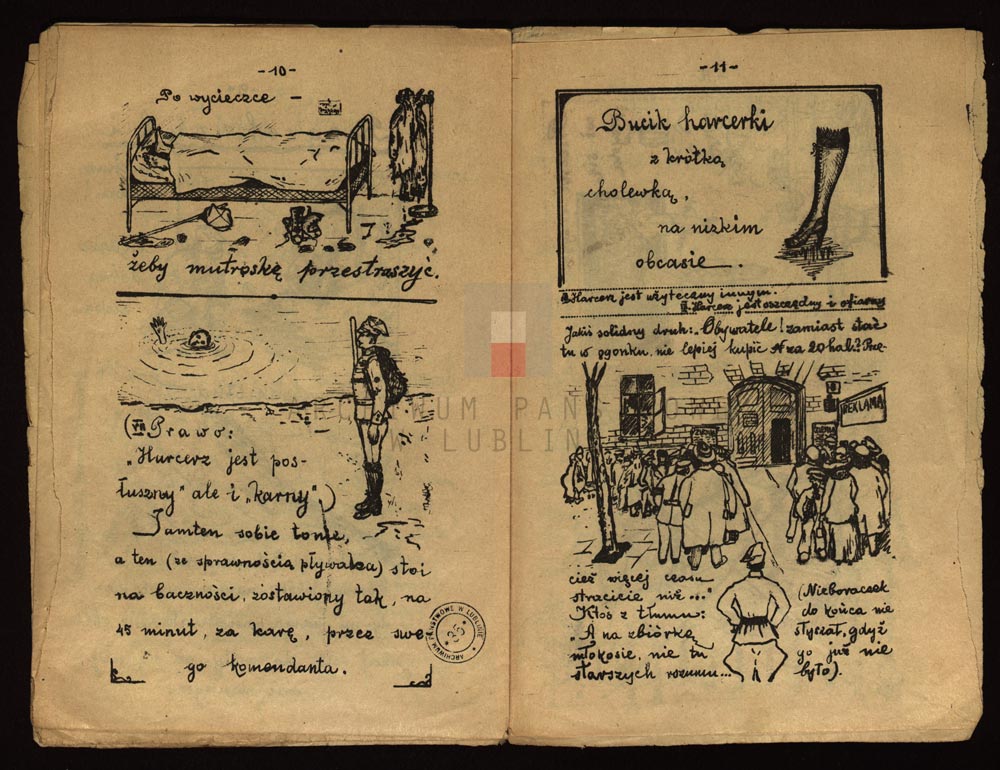 -10-
Po wycieczce -
żeby mutroskę przestraszyć.
(VII Prawo:
"Harcerz jest pos-
łuszny" ale i "karny".)
Tamten sobie tonie,
a ten (ze sprawnością pływaka) stoi
na baczności, zostawiony tak, na
45 minut, za karę, przez swe
go komendanta.
ARCHIWUM PAŃSTWOWE W LUBLINIE
35
-11-
Bucik harcerki
z krótką
cholewką,
na nizkim
obcasie.
III Harcerz jest użyteczny innym.
IX Harcerz jest oszczędny i ofiarny
Jakiś solidny druh: "Obywatele! zamiast stać
tu w ogonku, nie lepiej kupić N za 20 hal.? Prze-
REKLAMA
cież więcej czasu
stracicie niż..."
Ktoś z tłumu:
"A na zbiórkę
młokosie, nie tu
starszych rozumu...
(Nieboraczek
do końca nie
słyszał, gdyż
go już nie
było).
ARCHIWUM PAŃSTWOWE
W LUBLINIE